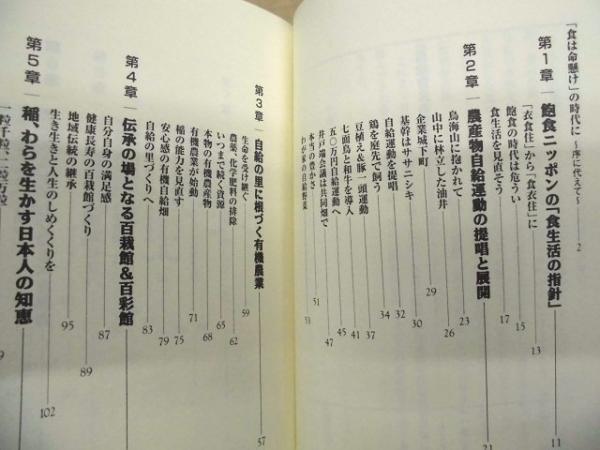 「食は命懸け」の時代に ～序に代えて～ 2
第1章 飽食ニッポンの「食生活の指針」 11
「衣食住」から「食衣住」に 13
飽食の時代は危うい 15
食生活を見直そう 17
第2章 農産物自給運動の提唱と展開 21
鳥海山に抱かれて 23
山中に林立した油井 26
企業城下町 29
基幹はササニシキ 30
自給運動を提唱 32
鶏を庭先で飼う 34
豆植え&豚一頭運動 37
七面鳥と和牛を導入 41
五〇万円自給運動へ 45
井戸端会議は共同畑で 47
本当の豊かさ 51
わが家の自給野菜 53
第3章 自給の里に根づく有機農業 57
生命を受け継ぐ 59
農薬、化学肥料の排除 62
いつまで続く資源 65
本物の有機農産物 68
有機農業が始動 71
稲の能力を見直す 75
安心感の有機自給畑 79
自給の里づくりへ 83
第4章 伝承の場となる百栽館&百彩館
自分自身の満足感 87
健康長寿の百栽館づくり 89
地域伝統の継承 95
生き生きと人生のしめくくりを 102
第5章 稲、わらを生かす日本人の知恵